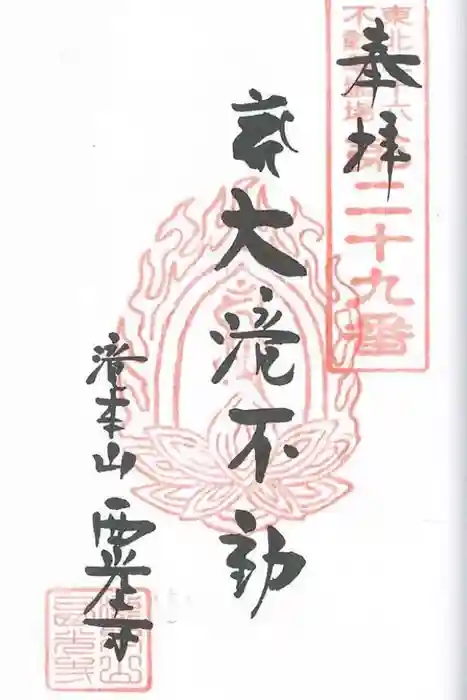 奉拝
東北三十六
不動尊霊場
第二十九番
大滝不動
滝本山 西光寺